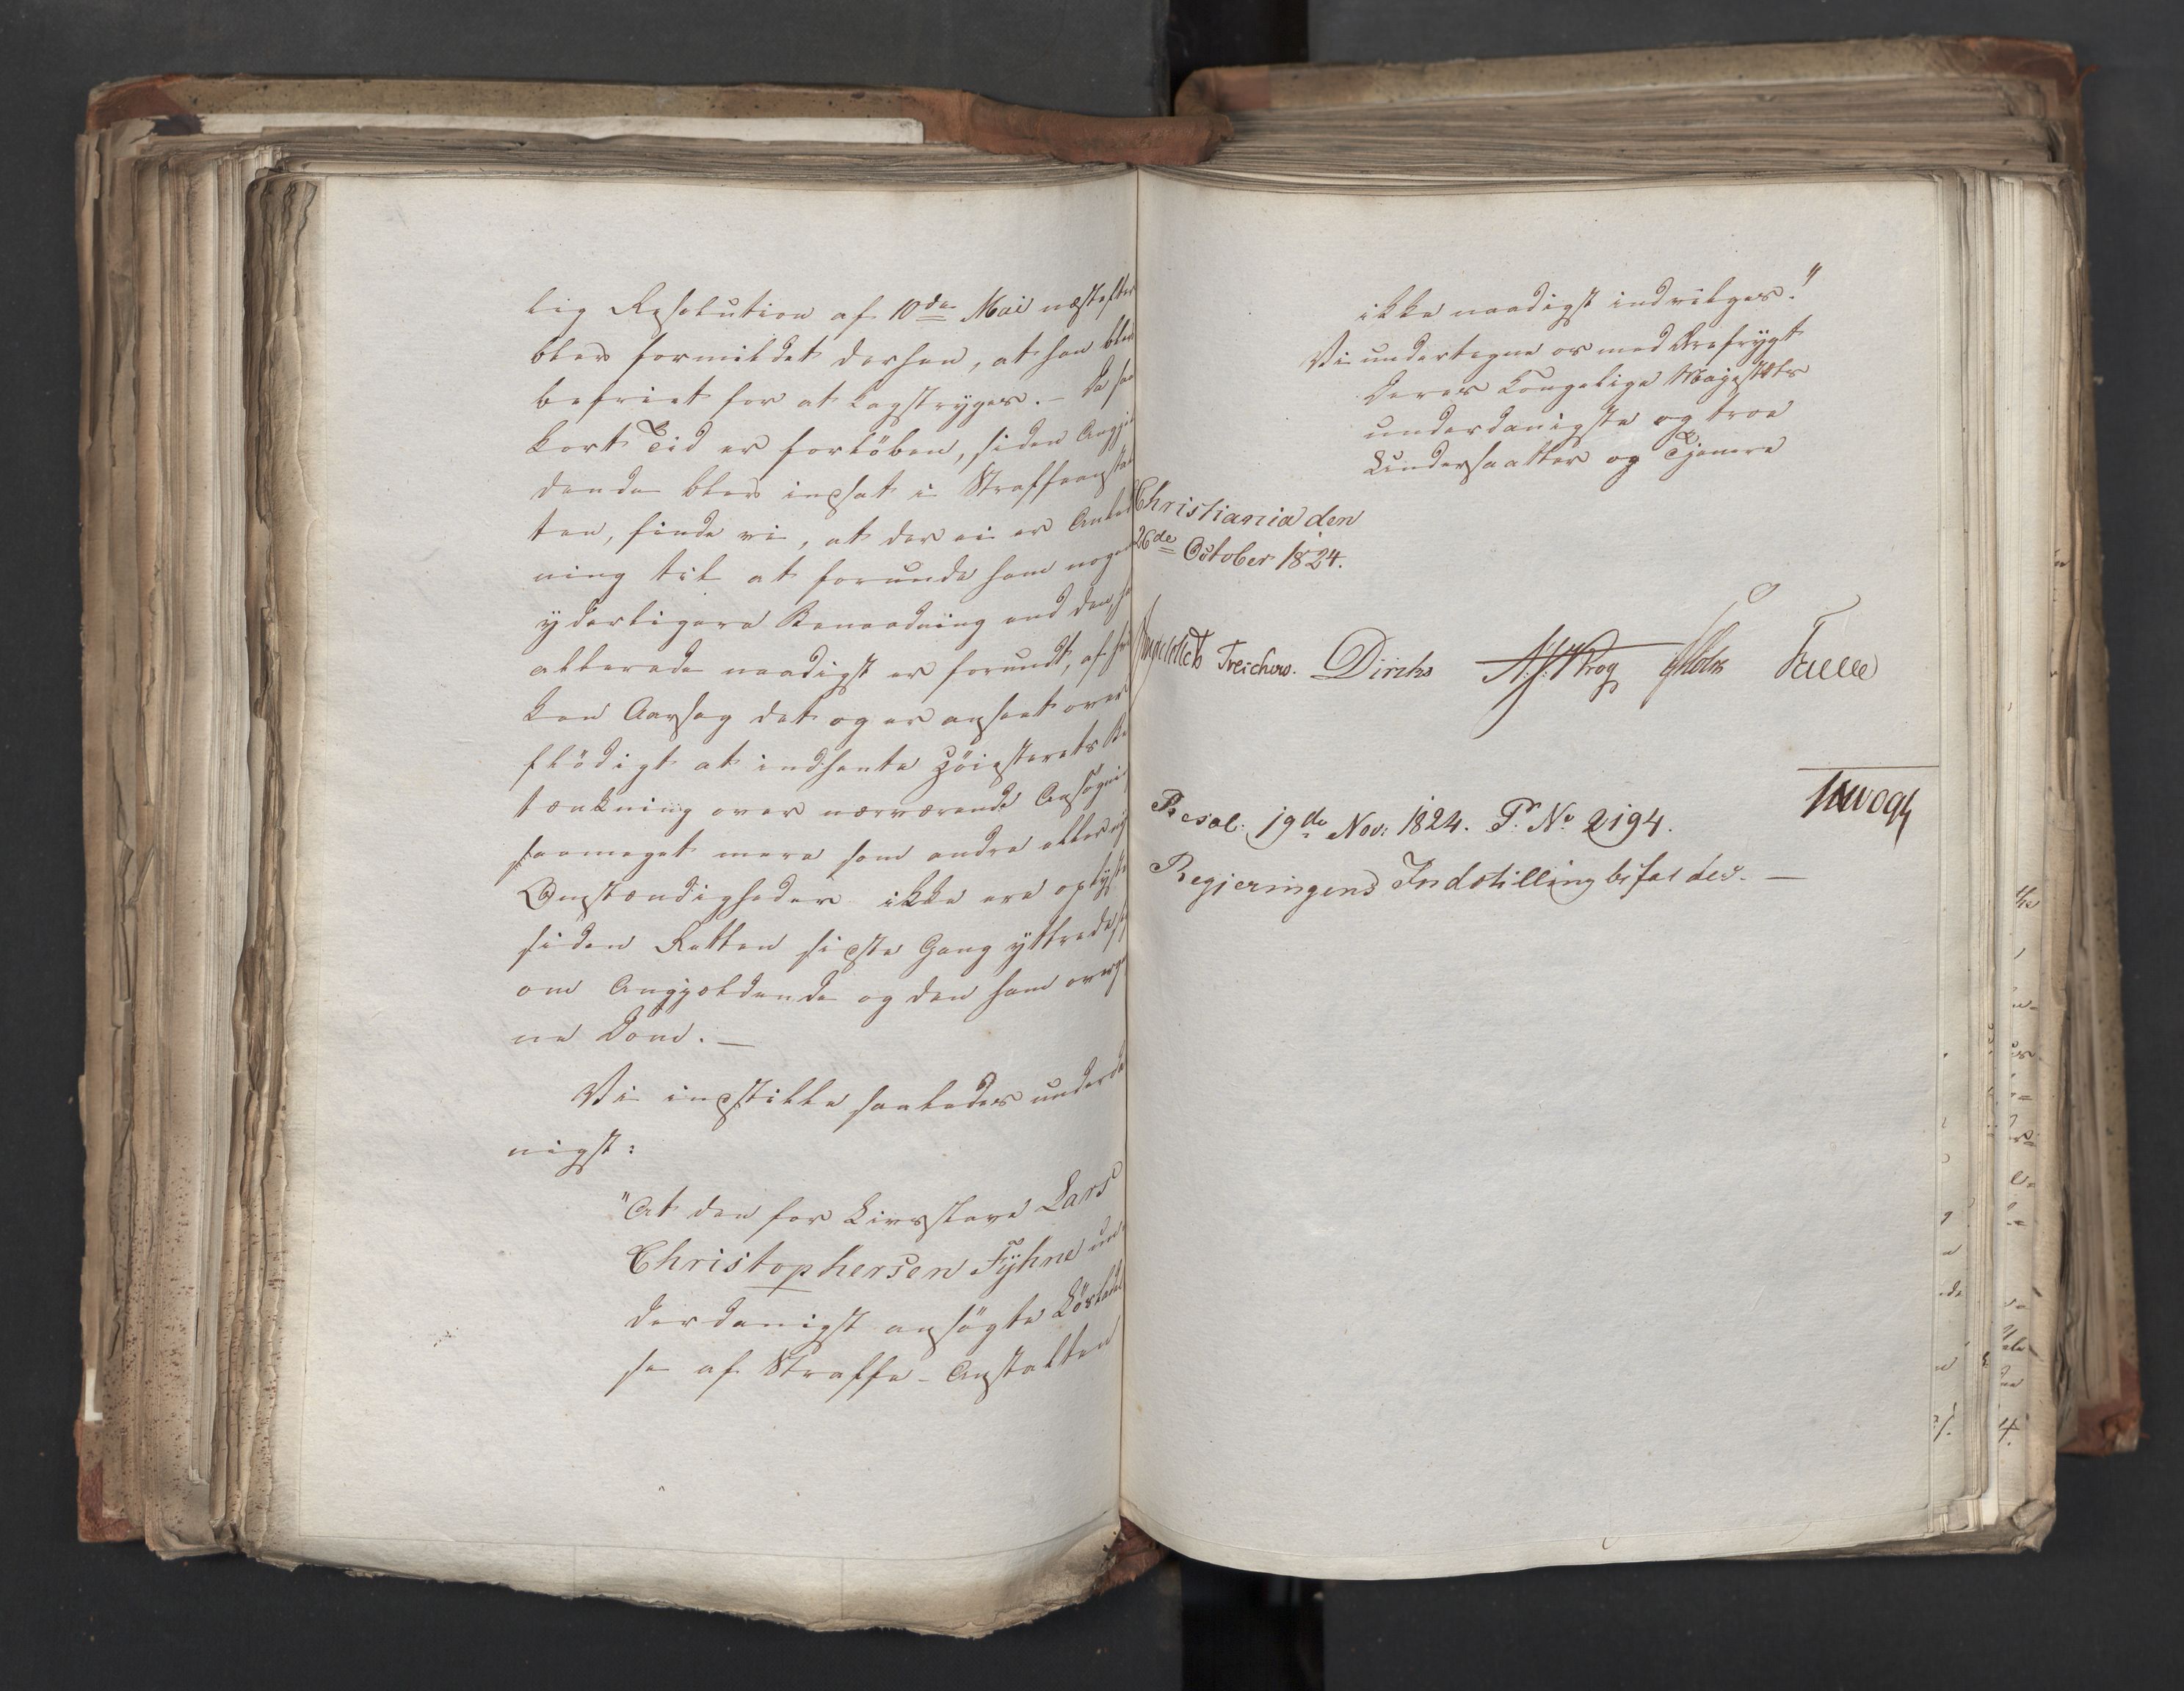 lig Resolution af 10de Mai næstefter
blev formildet derhen, at han blev
befriet for at kagstryges. – Da saa
kort Tid er forløben, siden Angjel
dende blev indsat i Straffeanstal
ten, finde vi, at der ei er Anled
ning til at forunde ham nogen
yderligere Benaadning end den, ham
allerede naadigst er forundt, af hvil
ken Aarsag det og er anseet over
flödigt at indhente Höiesterets Be
tænkning over nærværende Ansögning
saameget mere som andre eller nye
Omstændigheder ikke ere oplyste
siden Retten sidste Gang yttrede sig
om Angjældende og den ham overgang
ne Dom. –
Vi indstille saaledes underda
nigst:
"At den for Livsslave Lars
Christophersen Fÿhne un-
derdanigst ansögte Løsladel
se af Straffe-Anstalten
ikke naadigst indvilges."
Vi undertegne os med Ærefrygt
Deres Kongelige Majestæts
underdanigste og troe
Undersaatter og Tjenere
Christiania den
26de October 1824.
Treschow. Diriks N. J. Krog Holst Fasting
Resol. 19de Nov: 1824. P. No 2194.
Hwogh
Regjeringens Indstilling bifaldes. —